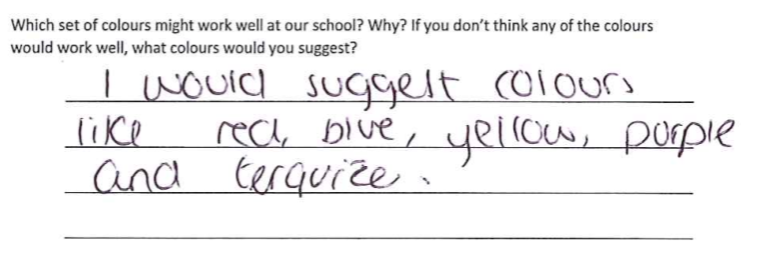 Which set of colours might work well at our school? Why? If you don't think any of the colours
would work well, what colours would you suggest?
I would suggest colours
like red, blue, yellow, purple
and terquize.